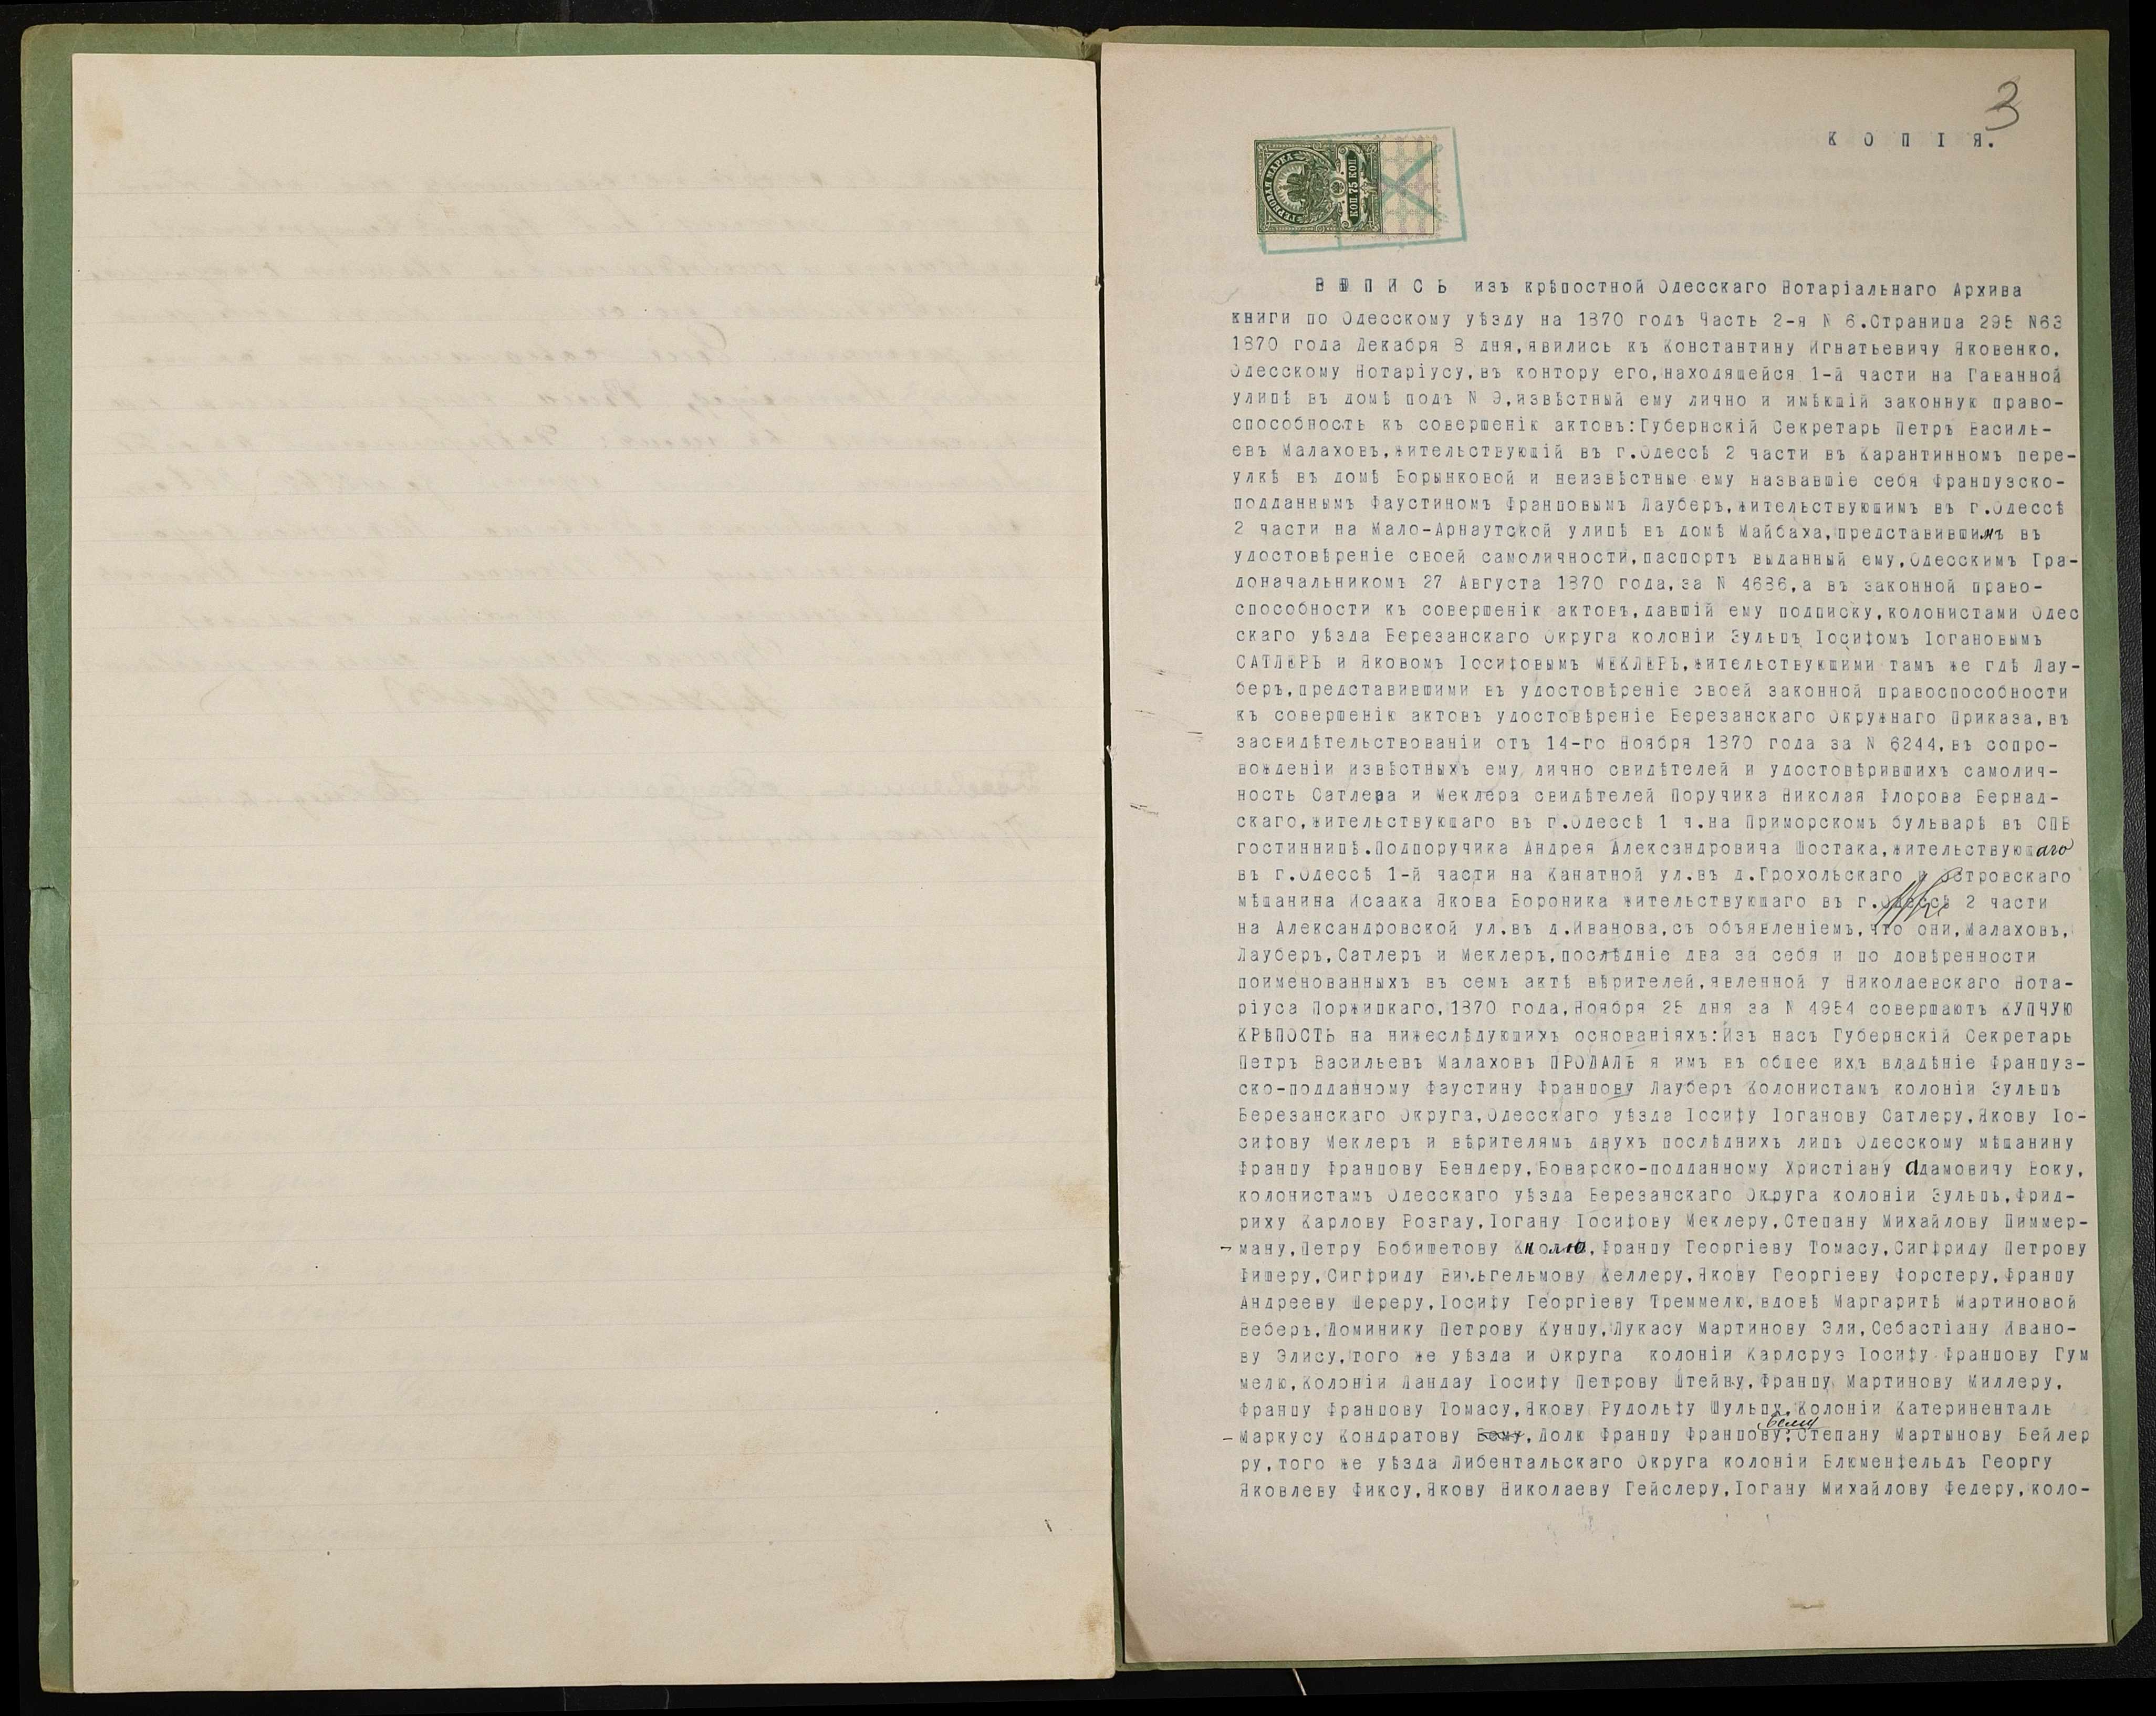 3
КОПІЯ.
ГЕРБОВАЯ МАРКА
75 КОП
ВЫПИСЬ изъ крѣпостной Одесскаго Нотаріальнаго Архива
книги по Одесскому уѣзду на 1870 годъ Часть 2-я N 6.Страница 295 N63
1870 года Декабря 8 дня,явились къ Константину Игнатьевичу Яковенко,
Одесскому Нотаріусу,въ контору его,находящейся 1-й части на Гаванной
улицѣ въ домѣ подъ N 9,извѣстный ему лично и имѣющій законную право-
способность къ совершенію актовъ:Губернскій Секретарь Петръ Василь-
евъ Малаховъ,жительствующій въ г.Одессѣ 2 части въ Карантинномъ пере-
улкѣ въ домѣ Борынковой и неизвѣстные ему назвавшіе себя Французско-
подданнымъ Фаустиномъ Францовымъ Лауберъ,жительствующимъ въ г.Одессѣ
2 части на Мало-Арнаутской улицѣ въ домѣ Майбаха,представившимъ въ
удостовѣреніе своей самоличности,паспортъ выданный ему,Одесскимъ Гра-
доначальникомъ 27 Августа 1870 года,за N 4686,а въ законной право-
способности къ совершенію актовъ,давшій ему подписку,колонистами Одес
скаго уѣзда Березанскаго Округа колоніи Зульцъ Іосифомъ Іогановымъ
САТЛЕРЪ и Яковомъ Іосифовымъ МЕКЛЕРЪ,жительствующими тамъ же гдѣ Лау-
беръ,представившими въ удостовѣреніе своей законной правоспособности
къ совершенію актовъ удостовѣреніе Березанскаго Окружнаго Приказа,въ
засвидѣтельствованіи отъ 14-го Ноября 1870 года за N 6244,въ сопро-
вожденіи извѣстныхъ ему лично свидѣтелей и удостовѣрившихъ самолич-
ность Сатлера и Меклера свидѣтелей Поручика Николая Флорова Бернад-
скаго,жительствующаго въ г.Одессѣ 1 ч.на Приморскомъ бульварѣ въ СПБ
гостинницѣ.Подпоручика Андрея Александровича Шостака,жительствующаго
въ г.Одессѣ 1-й части на Канатной ул.въ д.Грохольскаго и Островскаго
мѣщанина Исаака Якова Бороника жительствующаго въ г.Одессѣ 2 части
на Александровской ул.въ д.Иванова,съ объявленіемъ,что они,Малаховъ,
Лауберъ,Сатлеръ и Меклеръ,послѣдніе два за себя и по довѣренности
поименованныхъ въ семъ актѣ вѣрителей,явленной у Николаевскаго Нота-
ріуса Поржицкаго,1870 года,Ноября 25 дня за N 4954 совершаютъ КУПЧУЮ
КРѢПОСТЬ на нижеслѣдующихъ основаніяхъ:Изъ насъ Губернскій Секретарь
Петръ Васильевъ Малаховъ ПРОДАЛЪ я имъ въ общее ихъ владѣніе Француз-
ско-подданному Фаустину Францову Лауберъ Колонистамъ колоніи Зульцъ
Березанскаго Округа,Одесскаго уѣзда Іосифу Іоганову Сатлеру,Якову Іо-
сифову Меклеръ и вѣрителямъ двухъ послѣднихъ лицъ Одесскому мѣщанину
Францу Францову Бендеру,Боварско-подданному Христіану Адамовичу Боку,
колонистамъ Одесскаго уѣзда Березанскаго Округа колоніи Зульцъ,Фрид-
риху Карлову Розгау,Іогану Іосифову Меклеру,Степану Михайлову Циммер-
ману,Петру Бобишетову Кнолю,Францу Георгіеву Томасу,Сигфриду Петрову
Фишеру,Сигфриду Вильгельмову Келлеру,Якову Георгіеву Форстеру,Францу
Андрееву Шереру,Іосифу Георгіеву Треммелю,вдовѣ Маргаритѣ Мартиновой
Веберъ,Доминику Петрову Кунцу,Лукасу Мартинову Эли,Себастіану Ивано-
ву Элису,того же уѣзда и Округа колоніи Карлсруэ Іосифу Францову Гум
мелю,Колоніи Ландау Іосифу Петрову Штейну,Францу Мартинову Миллеру,
Францу Францову Томасу,Якову Рудольфу Шульцу,Колоніи Катериненталь
Бему
Маркусу Кондратову Бему,Долю Францу Францову;Степану Мартынову Бейлер
ру,того же уѣзда Либентальскаго Округа колоніи Блюменфельдъ Георгу
Яковлеву Фиксу,Якову Николаеву Гейслеру,Іогану Михайлову Федеру,коло-